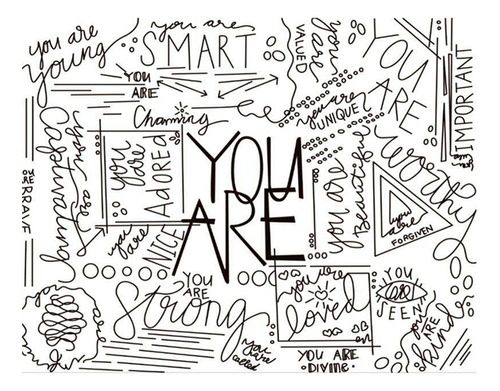 you are
young
you are
SMART
you are
VALUED
YOU
ARE
IMPORTANT
YOU
ARE
Charming
you are
UNIQUE
you are
Captivating
you are
Adored
YOU
ARE
you are
Beautiful
worthy
YOU
ARE
BRAVE
you are
NICE
you are
FORGIVEN
YOU
ARE
Strong
you are
loved
YOU
ARE
SEEN
YOU
ARE
kind
you are
called
YOU ARE
DIVINE